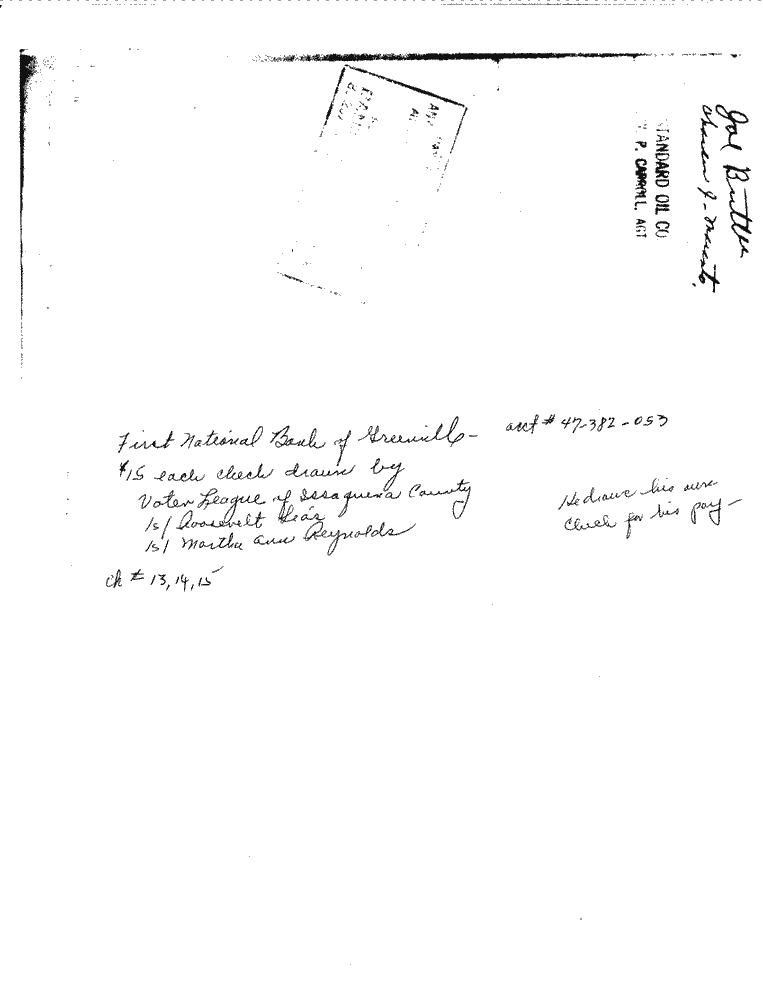 STANDARD OIL CO
P. CARROLL, AGT
First National Bank of Greenville - acct # 47-382-053
$15 each check drawn by
Voter League of Issaquena County
/s/ Roosevelt
/s/ Martha Ann Reynolds
He draws his own
check for his pay -
ck # 13, 14, 15